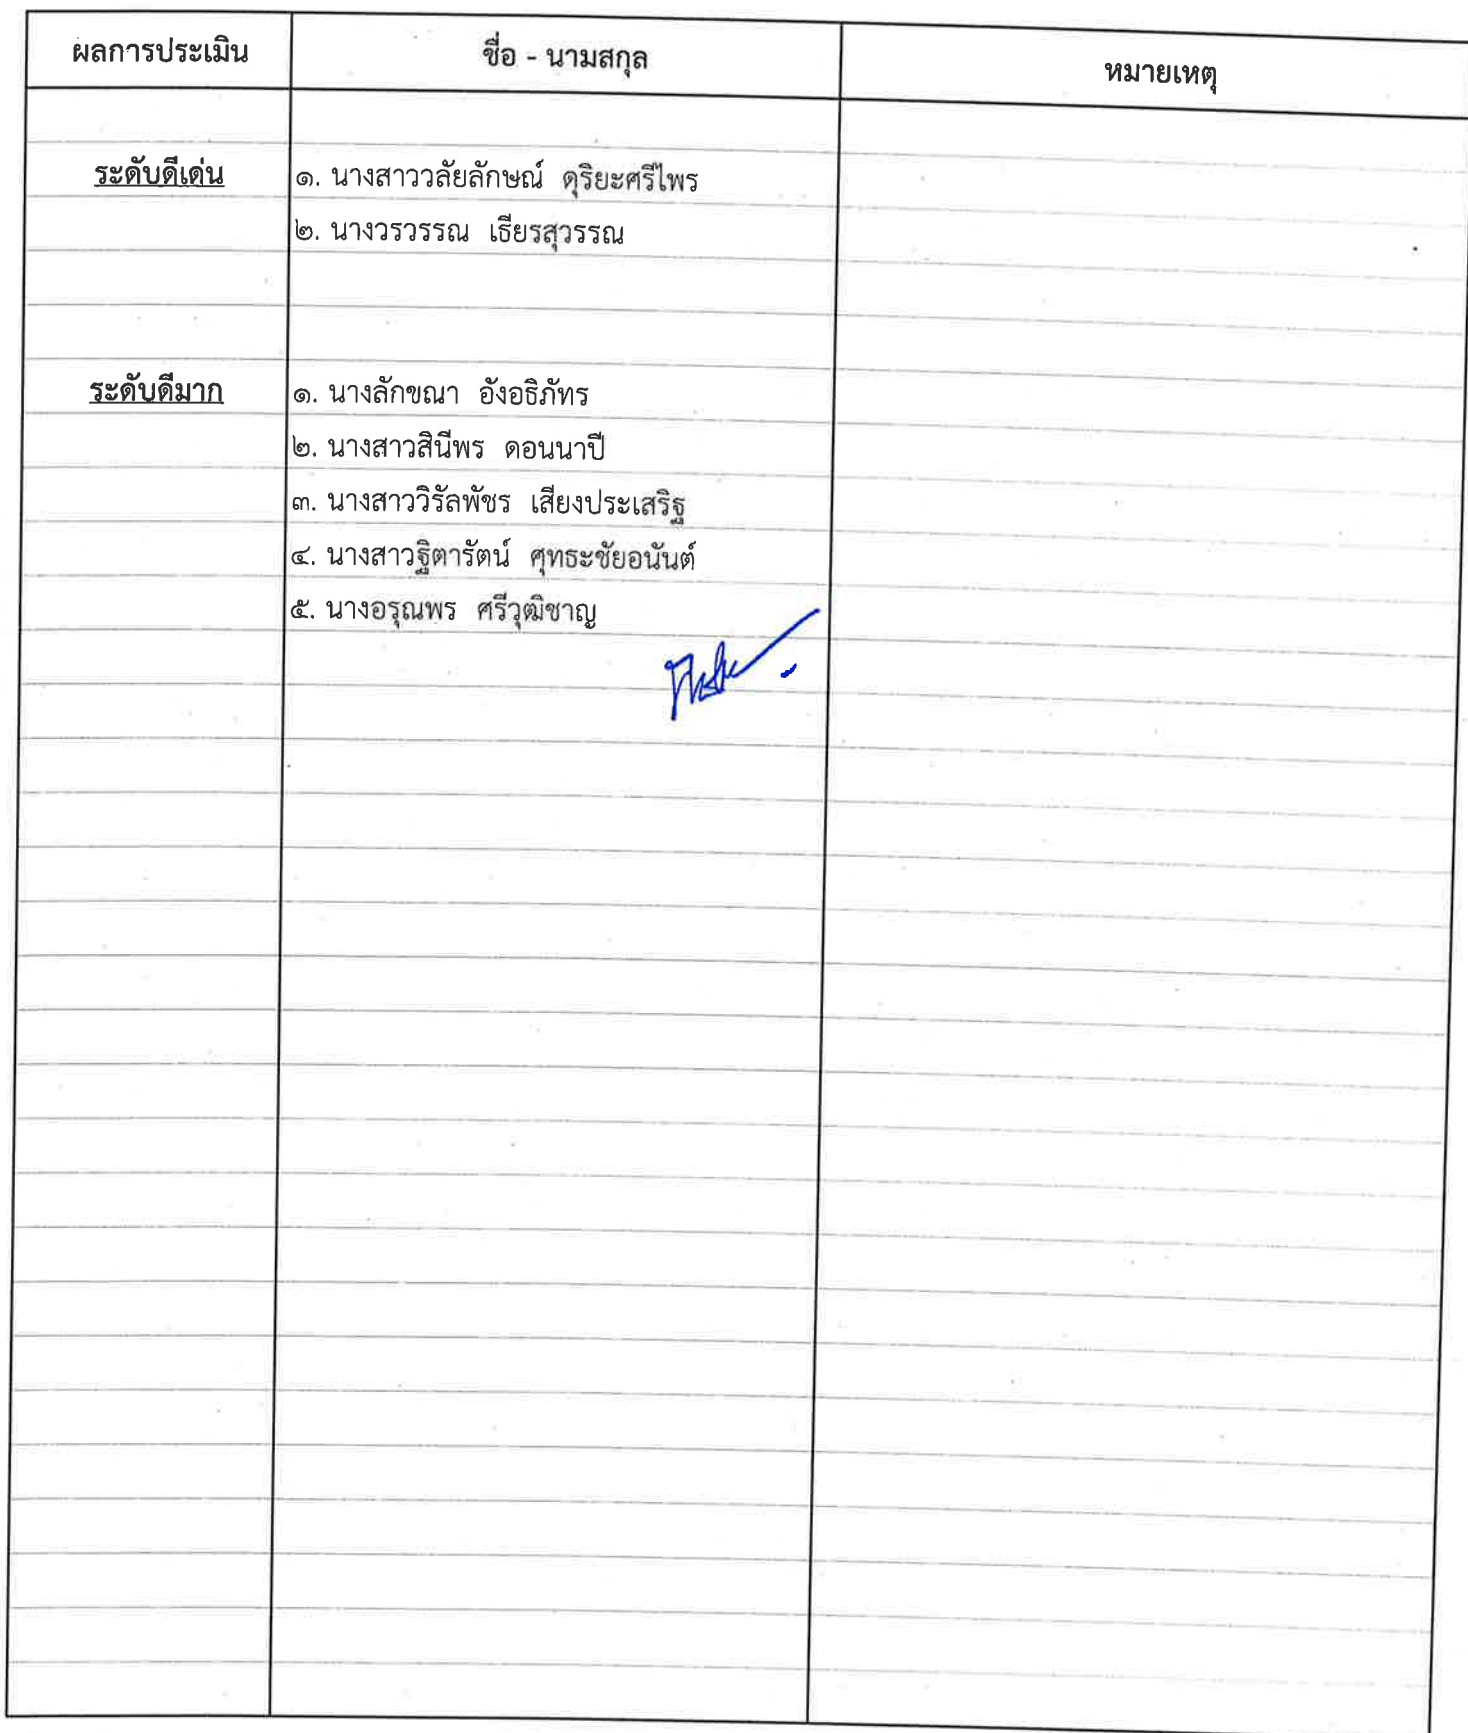 ผลการประเมิน ชื่อ - นามสกุล หมายเหตุ
ระดับดีเด่น ๑. นางสาววลัยลักษณ์ ดุริยะศรีไพร
๒. นางวรวรรณ เธียรสุวรรณ
ระดับดีมาก ๑. นางลักขณา อังอธิภัทร
๒. นางสาวสินีพร ดอนนาปี
๓. นางสาววิรัลพัชร เสียงประเสริฐ
๔. นางสาวฐิตารัตน์ ศุทธะชัยอนันต์
๕. นางอรุณพร ศรีวุฒิชาญ